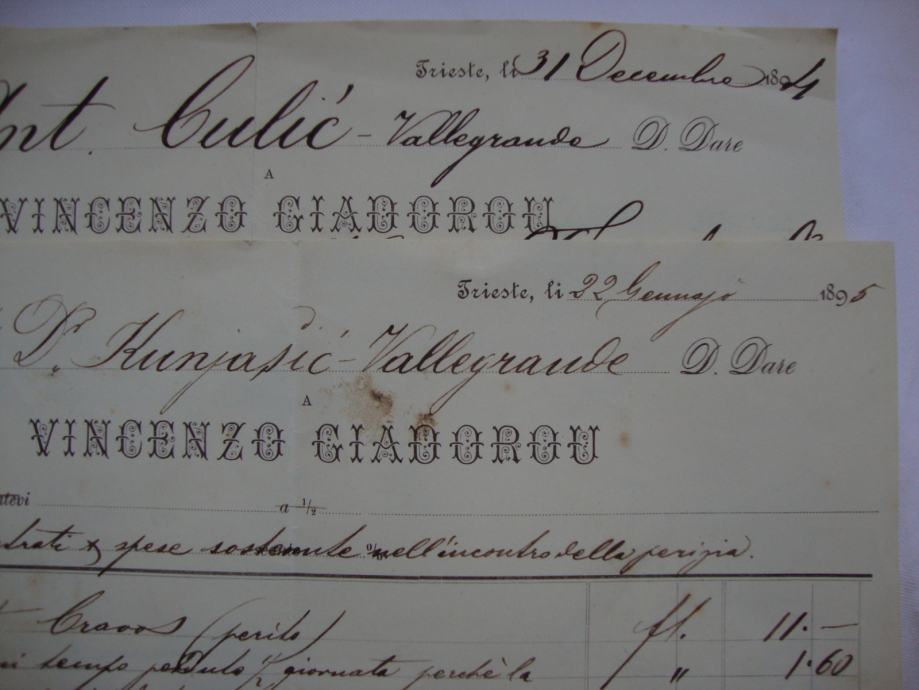 Trieste, li 31 Decembre 1894
Ant. Culić - Vallegrande D. Dare
A
VINCENZO GIADOROU
Trieste, li 22 Gennajo 1895
Dr. Kunjasić - Vallegrande D. Dare
A
VINCENZO GIADOROU
a 1/2
spese sostenute nell'incontro della perizia.
Cravos (perito) fl. 11.—
tempo perduto 1/2 giornata perchè la " 1.60